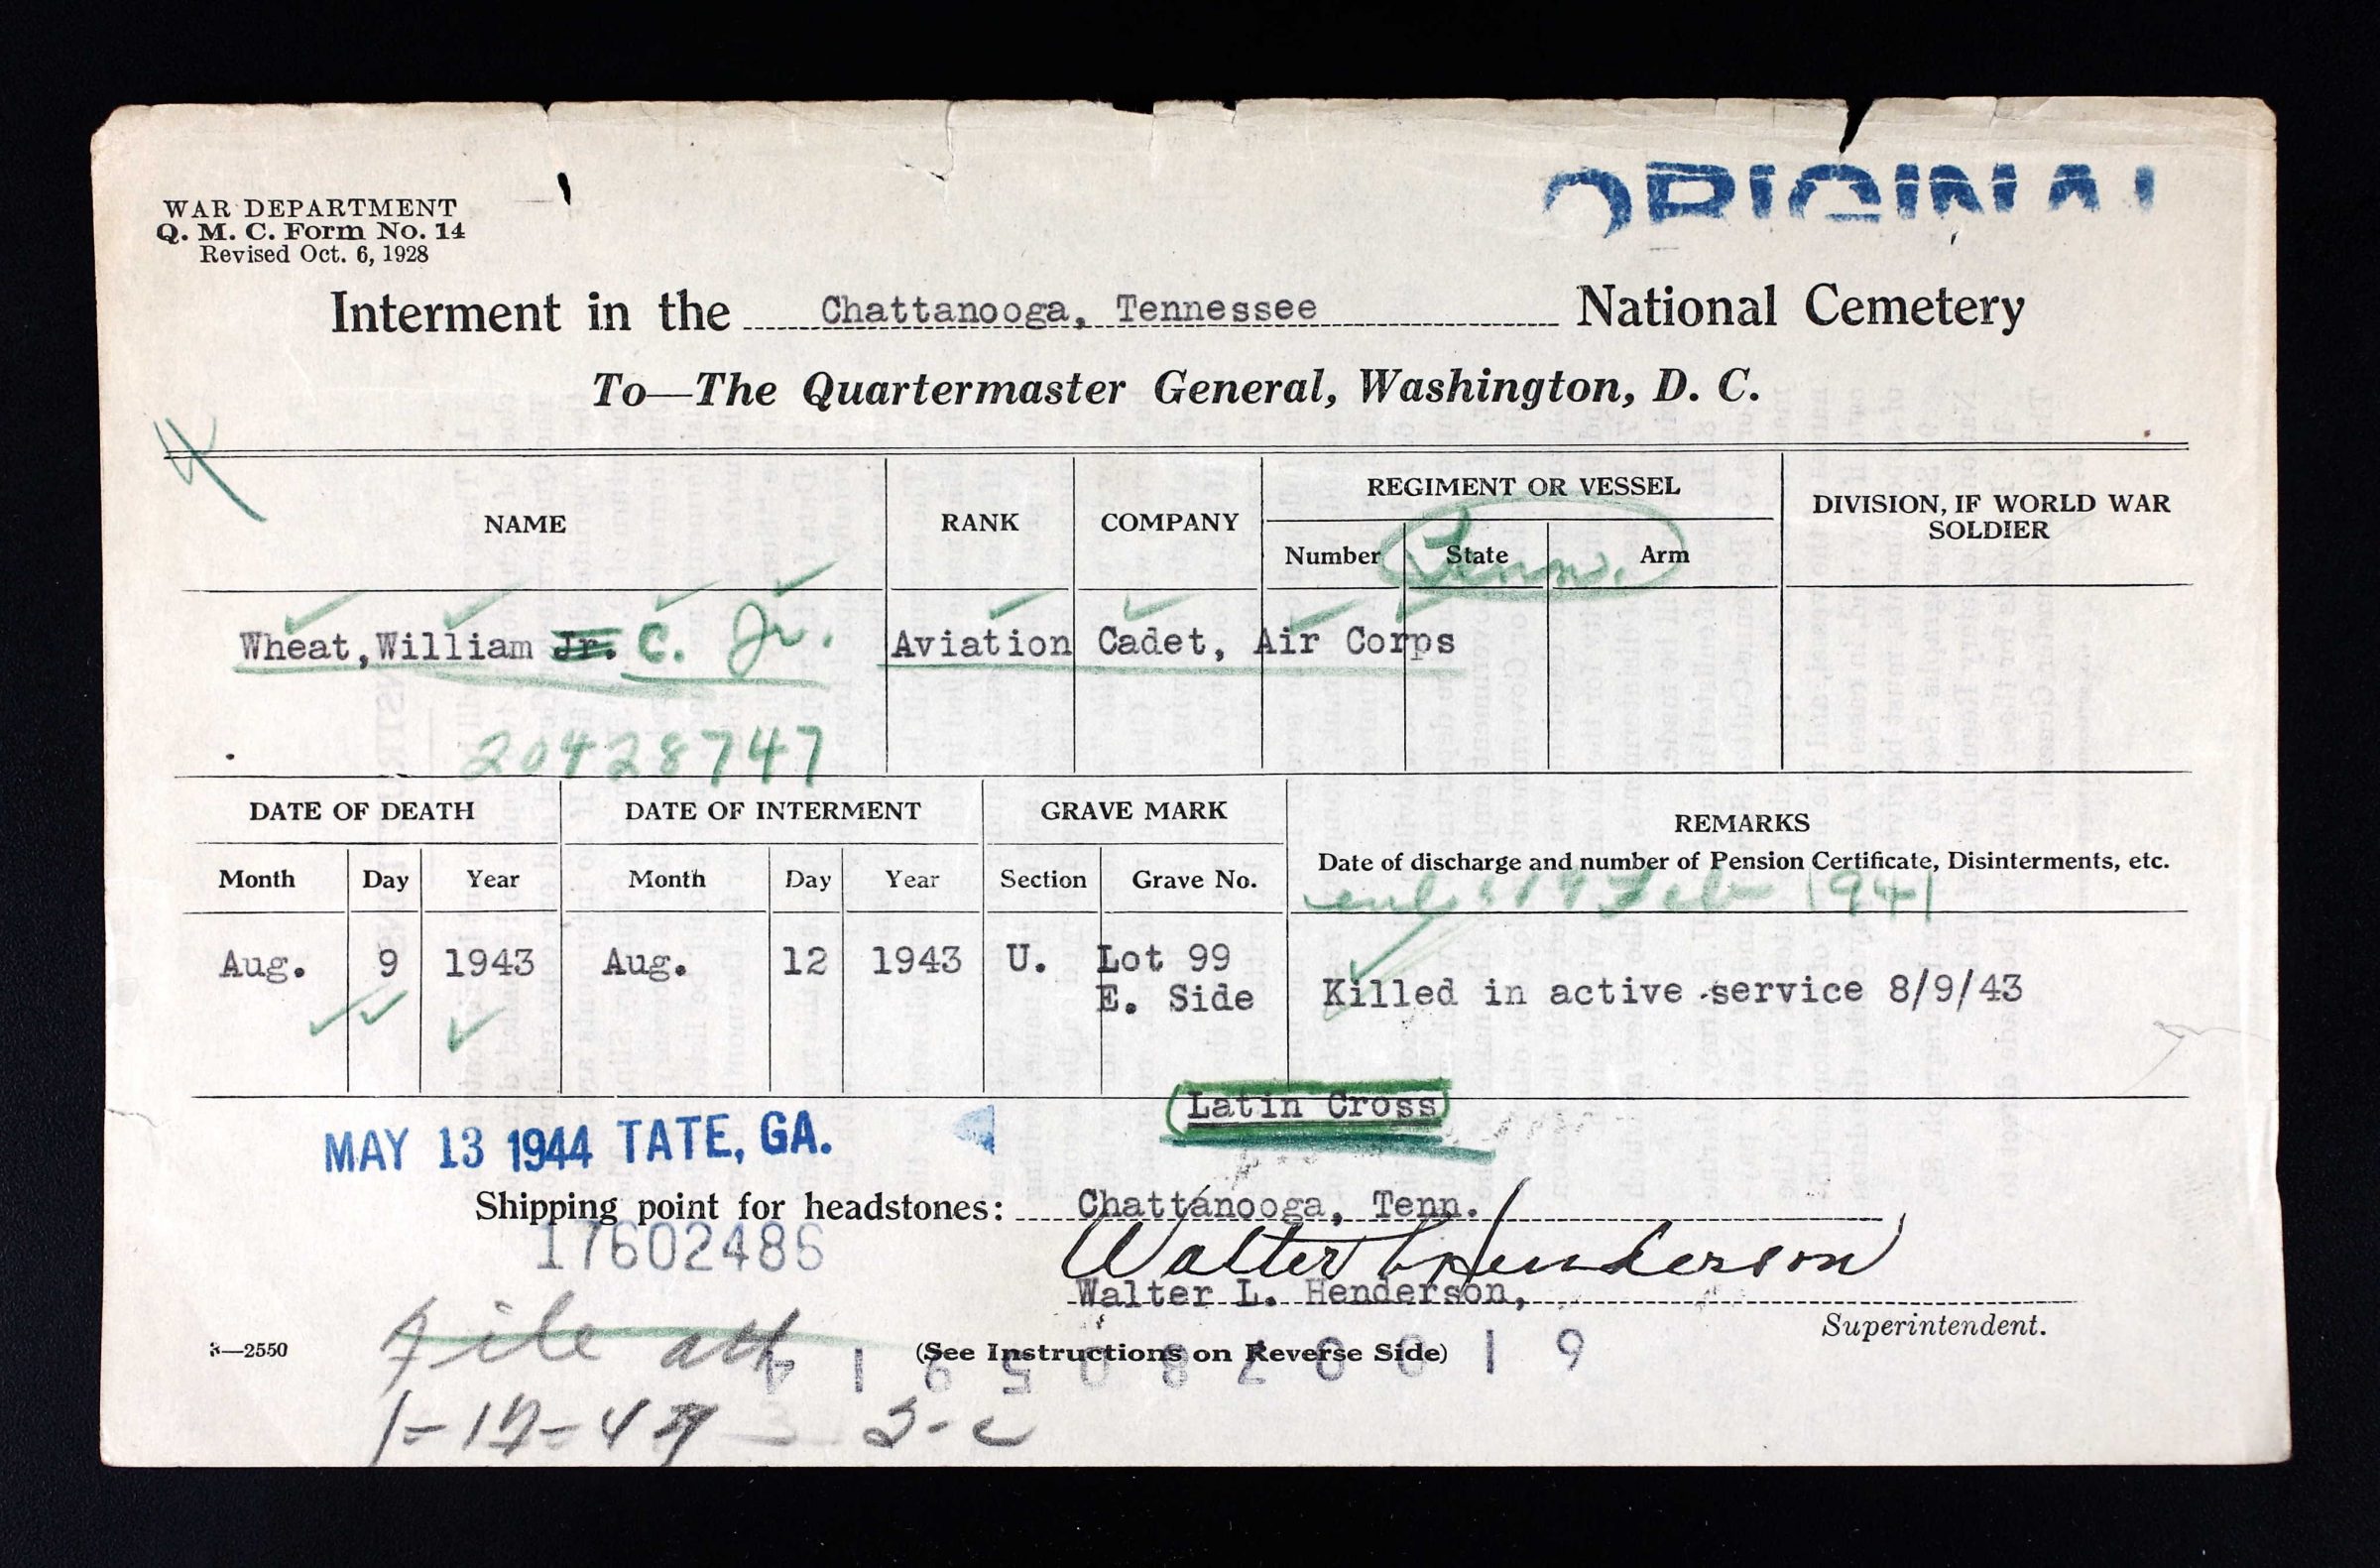 ORIGINAL
WAR DEPARTMENT
Q. M. C. Form No. 14
Revised Oct. 6, 1928
Interment in the Chattanooga, Tennessee National Cemetery
To—The Quartermaster General, Washington, D. C.
NAME
RANK
COMPANY
REGIMENT OR VESSEL
Number
State
Arm
Tenn.
DIVISION, IF WORLD WAR
SOLDIER
Wheat, William Jr. C. Jr.
Aviation Cadet, Air Corps
20428747
DATE OF DEATH
DATE OF INTERMENT
GRAVE MARK
REMARKS
Date of discharge and number of Pension Certificate, Disinterments, etc.
Month Day Year
Month Day Year
Section Grave No.
enl. 19 Feb 1941
Aug. 9 1943
Aug. 12 1943
U. Lot 99
E. Side
Killed in active service 8/9/43
Latin Cross
MAY 13 1944 TATE, GA.
Shipping point for headstones: Chattanooga, Tenn.
17602486
Walter L Henderson
Walter L. Henderson,
Superintendent.
3—2550
(See Instructions on Reverse Side)
file